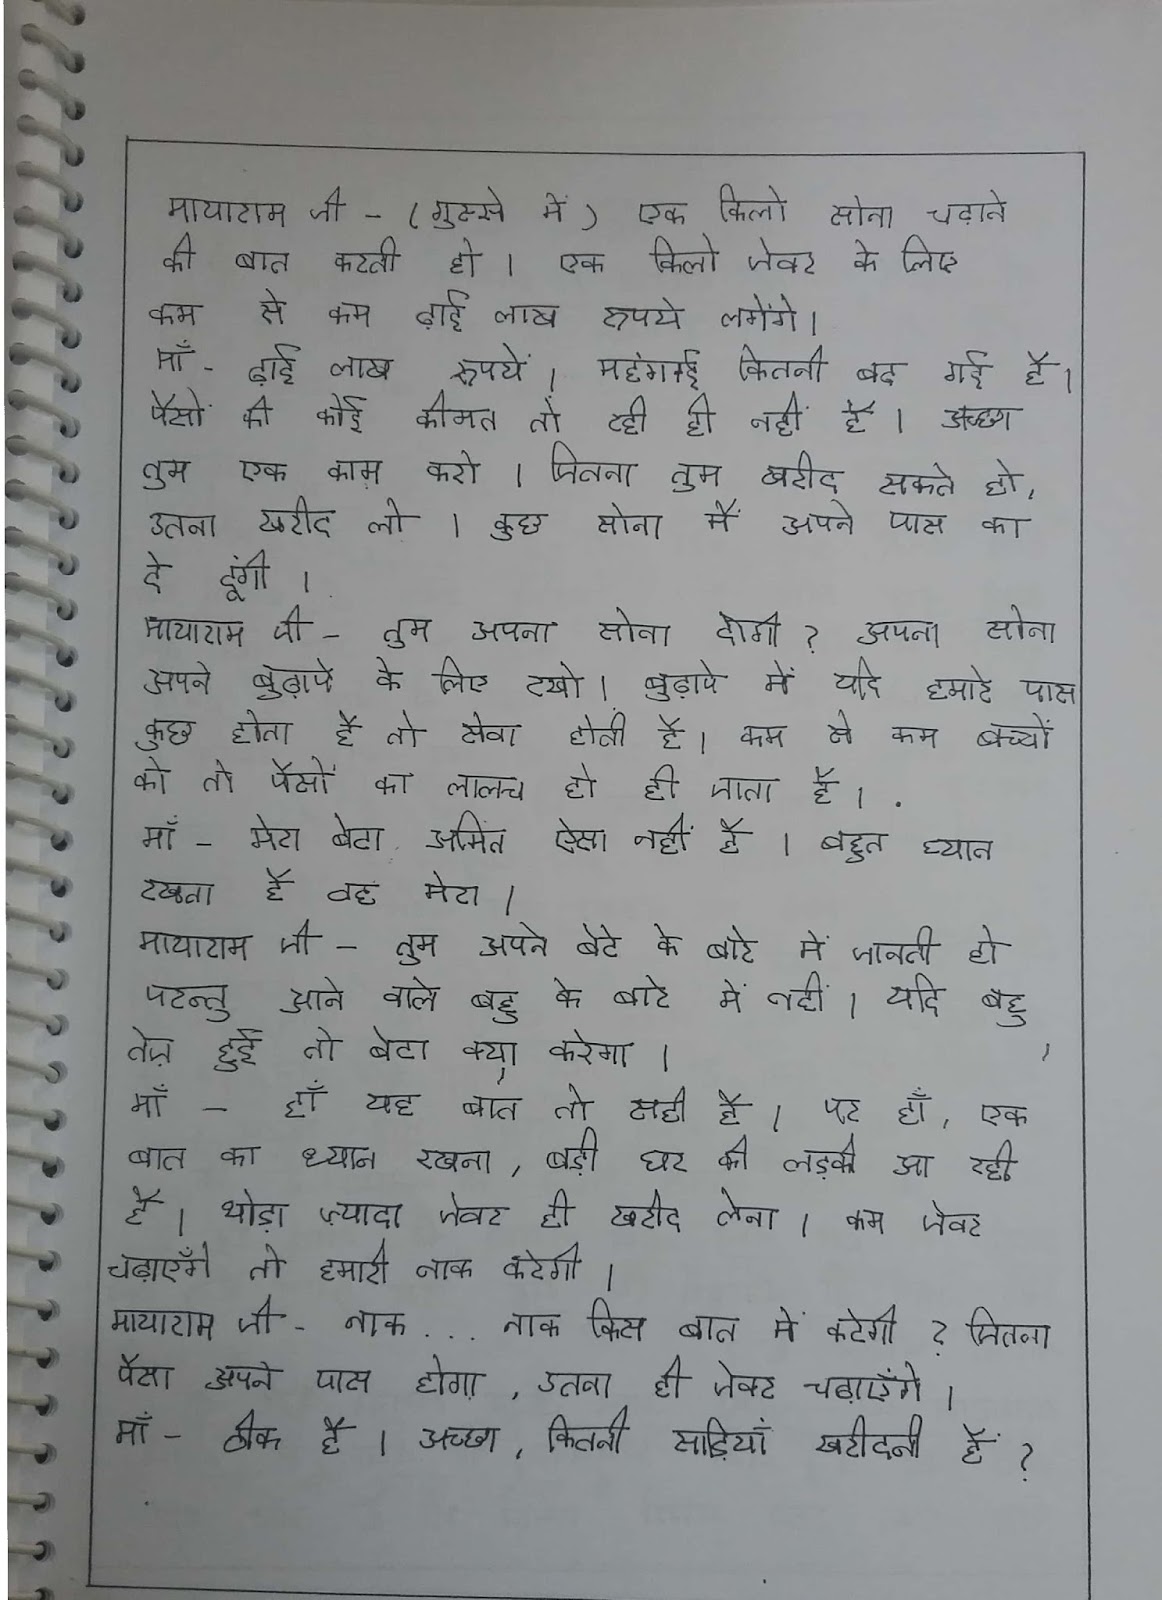 मायाराम जी - (गुस्से में) एक किलो सोना चढ़ाने
की बात करती हो । एक किलो जेवर के लिए
कम से कम ढ़ाई लाख रुपये लगेंगे।
माँ - ढ़ाई लाख रुपयें । महंगाई कितनी बढ़ गई है ।
पैसों की कोई कीमत तो रही ही नहीं है । अच्छा
तुम एक काम करो । जितना तुम खरीद सकते हो,
उतना खरीद लो । कुछ सोना मैं अपने पास का
दे दूंगी ।
मायाराम जी - तुम अपना सोना दोगी ? अपना सोना
अपने बुढ़ापे के लिए रखो । बुढ़ापे में यदि हमारे पास
कुछ होता है तो सेवा होती है । कम से कम बच्चों
को तो पैसों का लालच हो ही जाता है ।
माँ - मेरा बेटा अमित ऐसा नहीं है । बहुत ध्यान
रखता है वह मेरा ।
मायाराम जी - तुम अपने बेटे के बारे में जानती हो
परन्तु आने वाले बहु के बारे में नहीं । यदि बहु
तेज़ हुई तो बेटा क्या करेगा ।
माँ - हाँ यह बात तो सही है । पर हाँ, एक
बात का ध्यान रखना, बड़ी घर की लड़की आ रही
है । थोड़ा ज़्यादा जेवर ही खरीद लेना । कम जेवर
चढ़ाएँगे तो हमारी नाक कटेगी ।
मायाराम जी - नाक ... नाक किस बात में कटेगी ? जितना
पैसा अपने पास होगा, उतना ही जेवर चढ़ाएँगे ।
माँ - ठीक है । अच्छा, कितनी साड़ियाँ खरीदनी हैं ?